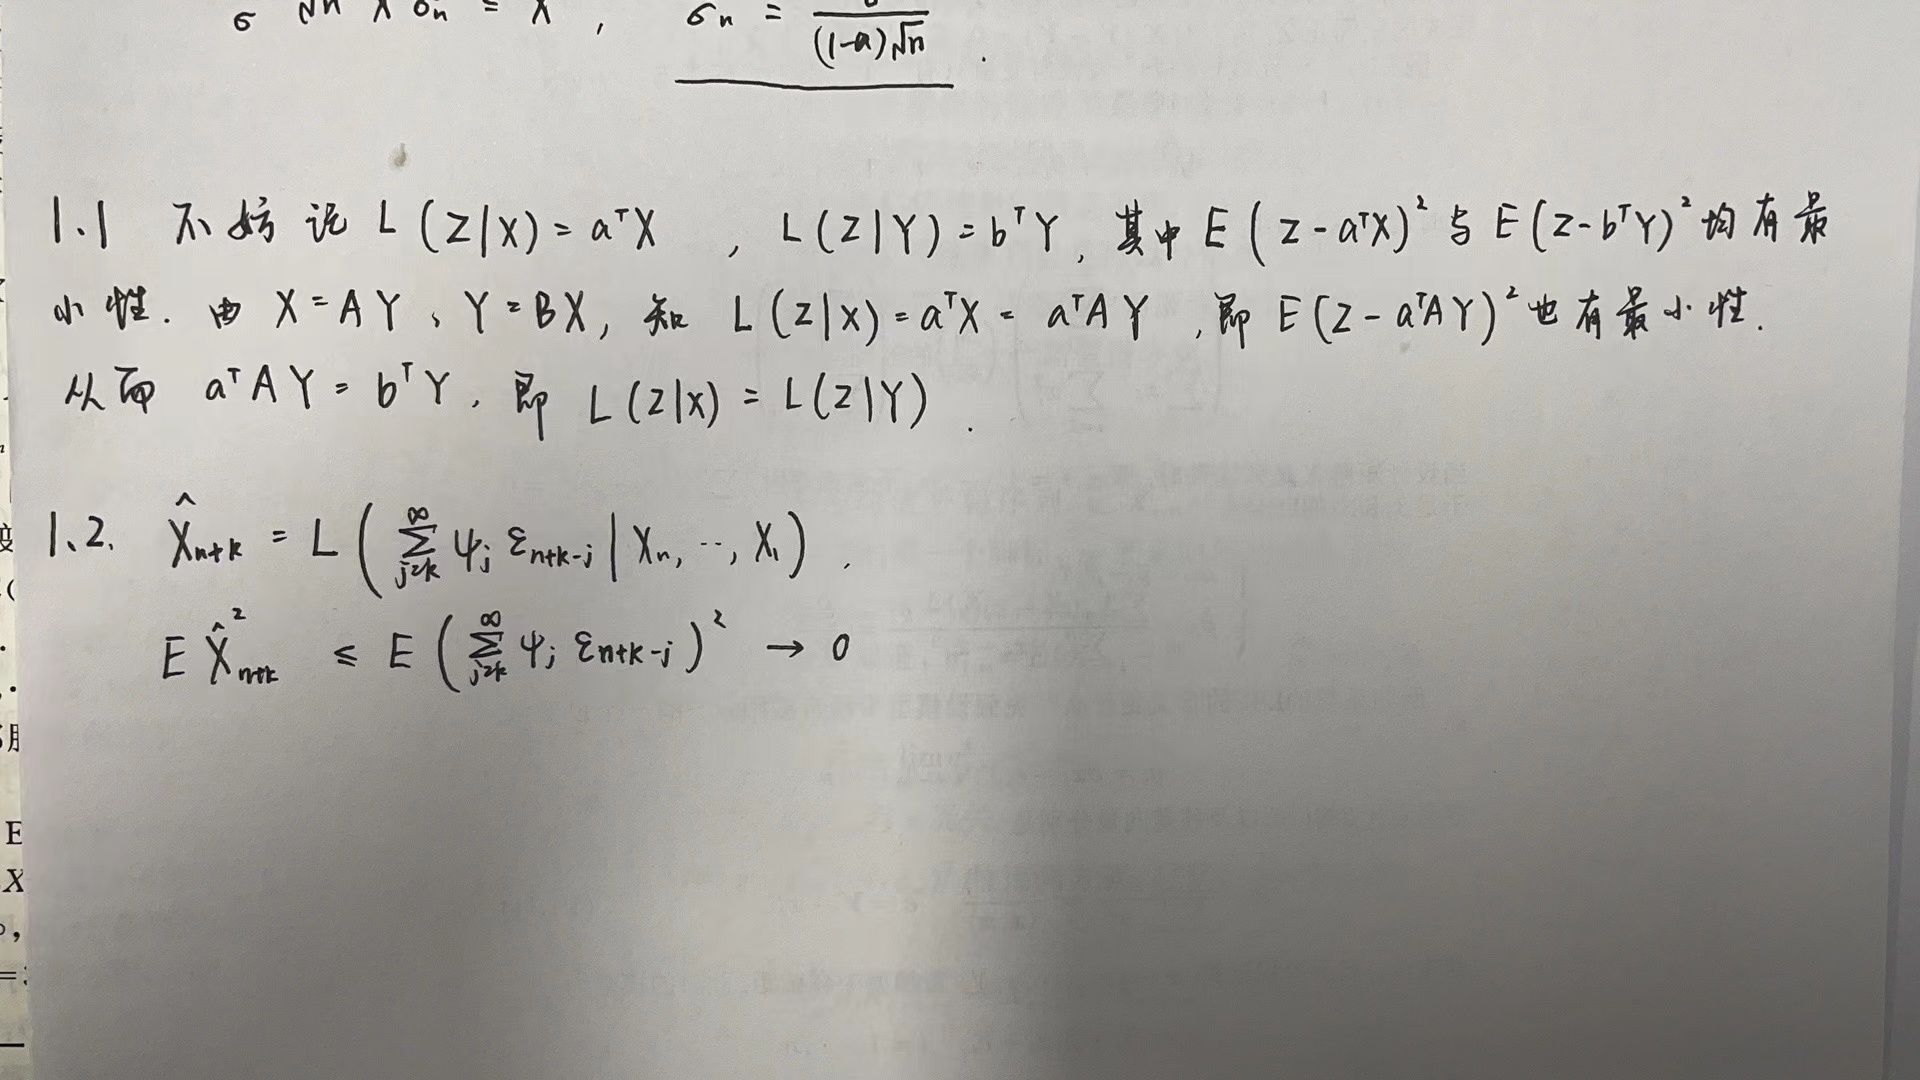 σ √n × σn = X , σn = σ/((1-a)√n) .
1.1 不妨设 L(Z|X) = aᵀX , L(Z|Y) = bᵀY, 其中 E(Z - aᵀX)² 与 E(Z - bᵀY)² 均有最
小性. 由 X = AY、Y = BX, 知 L(Z|X) = aᵀX = aᵀAY , 即 E(Z - aᵀAY)² 也有最小性.
从而 aᵀAY = bᵀY, 即 L(Z|X) = L(Z|Y) .
1.2. X̂ₙ₊ₖ = L(∑_{j=k}^{∞} ψⱼ εₙ₊ₖ₋ⱼ | Xₙ, ⋯, X₁) .
E X̂²ₙ₊ₖ ≤ E(∑_{j=k}^{∞} ψⱼ εₙ₊ₖ₋ⱼ)² → 0
E
X